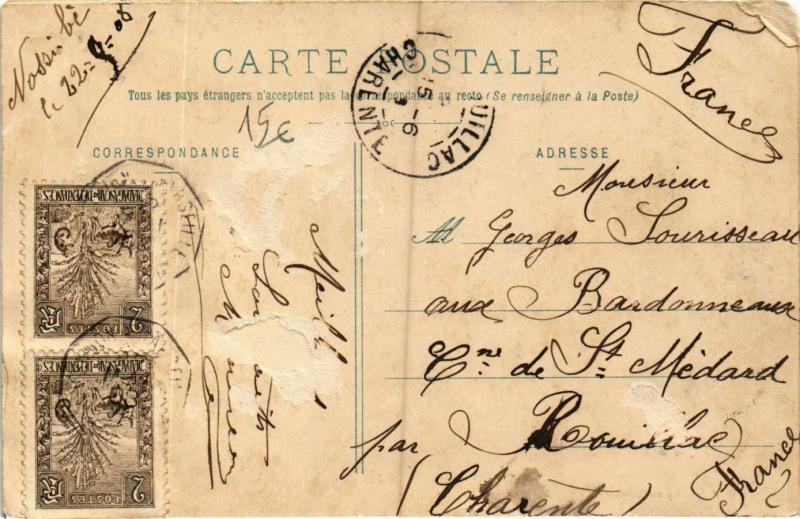 Nossi bé
le 22-9-08
CARTE POSTALE
Tous les pays étrangers n'acceptent pas la correspondance au recto (Se renseigner à la Poste)
15€
CORRESPONDANCE
ADRESSE
France
Monsieur
Georges Sourisseau
aux Bardonneaux
Cne de St Médard
par Rouillac
(Charente)
France
ROUILLAC
CHARENTE
MADAGASCAR ET DÉPENDANCES
2
POSTES
MADAGASCAR ET DÉPENDANCES
2
POSTES